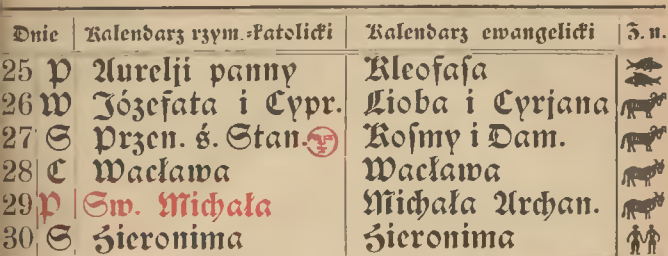 Dnie Kalendarz rzym.=katolicki Kalendarz ewangelicki Z. n.
25 P Aurelji panny Kleofaſa
26 W Józefata i Cypr. Lioba i Cyrjana
27 S Przen. ś. Stan. Koſmy i Dam.
28 C Wacława Wacława
29 P Sw. Michała Michała Archan.
30 S Hieronima Hieronima